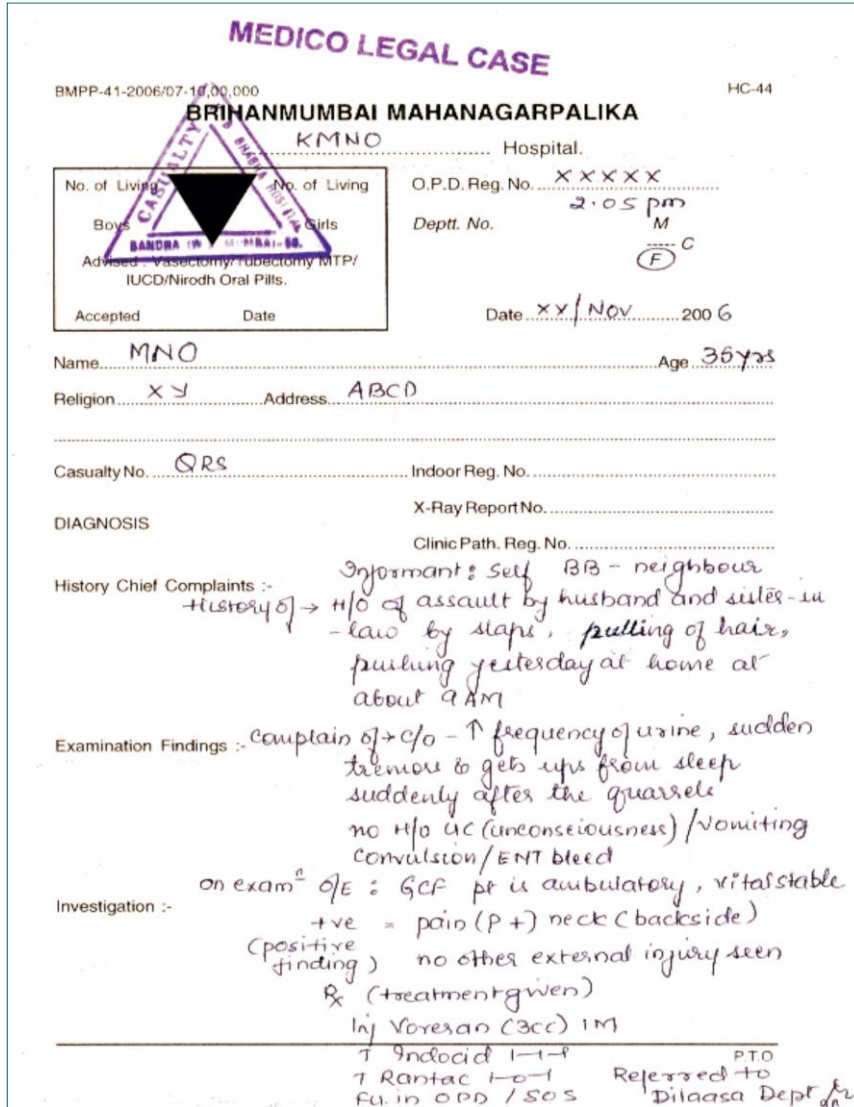 MEDICO LEGAL CASE
BMPP-41-2006/07-10,00,000 HC-44
BRIHANMUMBAI MAHANAGARPALIKA
KMNO Hospital.
CASUALTY
BHABHA HOSPITAL
BANDRA (W) MUMBAI-50.
No. of Living No. of Living
Boys Girls
Advised : Vasectomy/Tubectomy MTP/
IUCD/Nirodh Oral Pills.
Accepted Date
O.P.D. Reg. No. XXXXX
2.05 pm
Deptt. No. M
C
F
Date XX/NOV 2006
Name MNO Age 35yrs
Religion XY Address ABCD
Casualty No. QRS Indoor Reg. No.
X-Ray Report No.
DIAGNOSIS
Clinic Path. Reg. No.
Informant: Self BB - neighbour
History Chief Complaints :-
History of → H/O of assault by husband and sister-in
-law by slaps, pulling of hair,
pushing yesterday at home at
about 9AM
Examination Findings :- Complain of → C/O - ↑ frequency of urine, sudden
tremors & gets ups from sleep
suddenly after the quarrele
no H/o UC (unconsciousness) / vomiting
convulsion / ENT bleed
on examn O/E : GCF pt is ambulatory, vital stable
Investigation :-
+ve = pain (P+) neck (backside)
(positive finding) no other external injury seen
Rx (treatment given)
Inj Voresan (3cc) IM
T Indocid 1-1-1 P.T.O
T Rantac 1-0-1 Referred to
FU. in OPD / SOS Dilaasa Dept